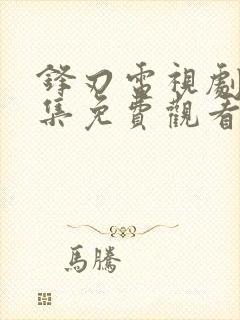 鋒刃電視劇
集免費觀看
馬騰